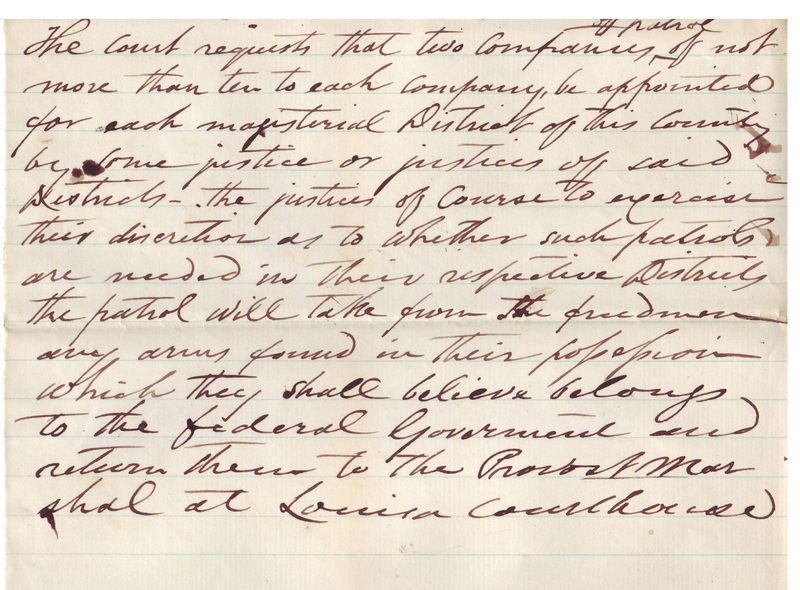 of patrol
The court requests that two companies, of not
more than ten to each company, be appointed
for each magisterial District of this County
by some justice or justices of said
Districts - the justices of Course to exercise
their discretion as to whether such patrols
are needed in their respective Districts
the patrol will take from the freedmen
any arms found in their possession
which they shall believe belongs
to the federal Goverment and
return them to the Provost Mar
shal at Louisa Courthouse